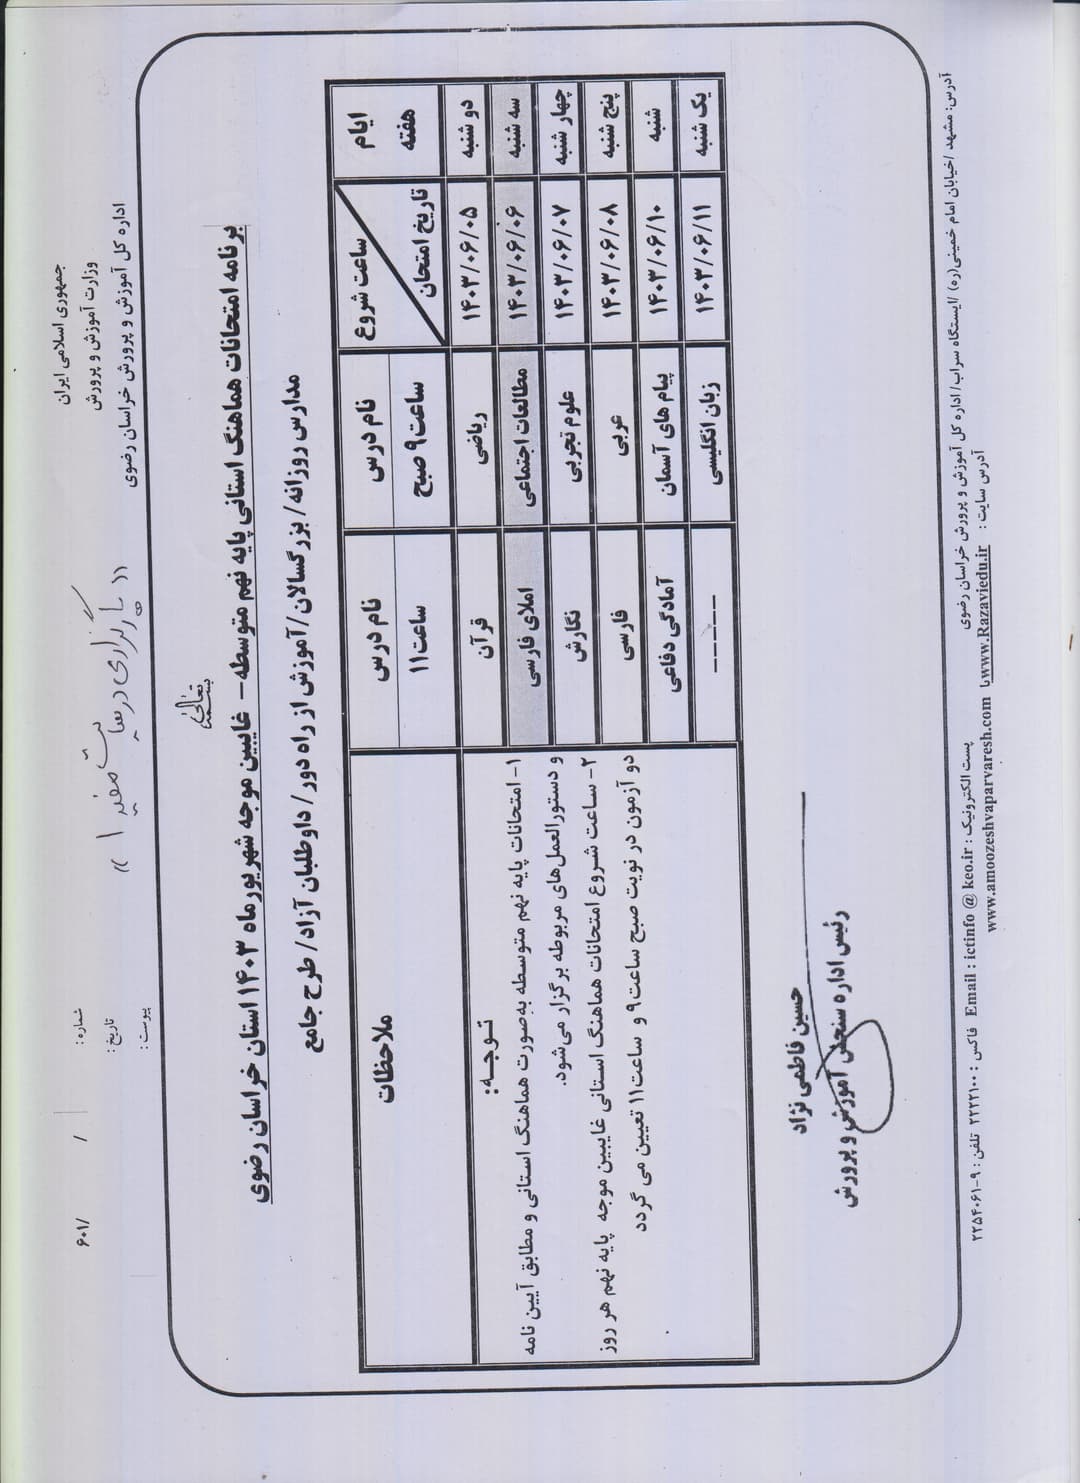 جمهوری اسلامی ایران
وزارت آموزش و پرورش
اداره کل آموزش و پرورش خراسان رضوی
شماره :
۶۰۱/ /
تاریخ :
پیوست :
بسمه تعالی
برنامه امتحانات هماهنگ استانی پایه نهم متوسطه- غایبین موجه شهریورماه ۱۴۰۳ استان خراسان رضوی
مدارس روزانه/ بزرگسالان/آموزش از راه دور/ داوطلبان آزاد/ طرح جامع
ایام هفته
ساعت شروع
تاریخ امتحان
نام درس
ساعت ۹ صبح
نام درس
ساعت ۱۱
ملاحظات
دو شنبه ۱۴۰۳/۰۶/۰۵ ریاضی قرآن
سه شنبه ۱۴۰۳/۰۶/۰۶ مطالعات اجتماعی املای فارسی
چهار شنبه ۱۴۰۳/۰۶/۰۷ علوم تجربی نگارش
پنج شنبه ۱۴۰۳/۰۶/۰۸ عربی فارسی
شنبه ۱۴۰۳/۰۶/۱۰ پیام های آسمان آمادگی دفاعی
یک شنبه ۱۴۰۳/۰۶/۱۱ زبان انگلیسی -----
توجه:
۱- امتحانات پایه نهم متوسطه به‌صورت هماهنگ استانی و مطابق آیین نامه
و دستورالعمل‌های مربوطه برگزار می‌شود.
۲- ساعت شروع امتحانات هماهنگ استانی غایبین موجه پایه نهم هر روز
دو آزمون در نوبت صبح ساعت ۹ و ساعت ۱۱ تعیین می گردد
حسین فاطمی نژاد
رئیس اداره سنجش آموزش و پرورش
آدرس: مشهد /خیابان امام خمینی(ره) /ایستگاه سراب/ اداره کل آموزش و پرورش خراسان رضوی
پست الکترونیک : Email : ictinfo @ keo.ir فاکس : ۲۲۲۲۱۰۰ تلفن: ۹-۲۲۵۴۰۶۱
آدرس سایت : www.Razaviedu.ir یا www.amoozeshvaparvaresh.com